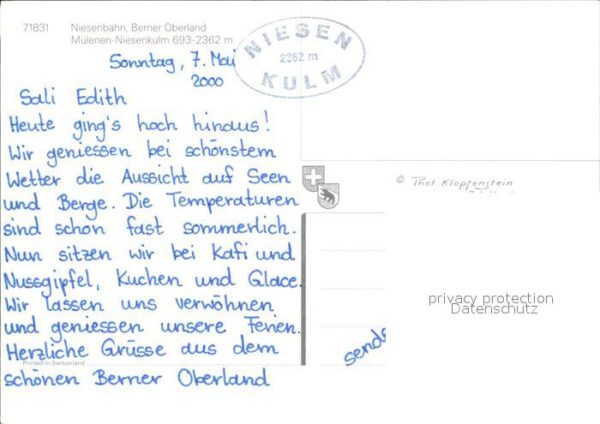 71831 Niesenbahn, Berner Oberland
Mülenen-Niesenkulm 693-2362 m
NIESEN
2362 m
KULM
Sonntag, 7. Mai
2000
Sali Edith
Heute ging's hoch hinaus!
Wir geniessen bei schönstem
Wetter die Aussicht auf Seen
und Berge. Die Temperaturen
sind schon fast sommerlich.
Nun sitzen wir bei Kafi und
Nussgipfel, Kuchen und Glace.
Wir lassen uns verwöhnen
und geniessen unsere Ferien.
Herzliche Grüsse aus dem
schönen Berner Oberland
Printed in Switzerland
© Phot Klopfenstein
privacy protection
Datenschutz